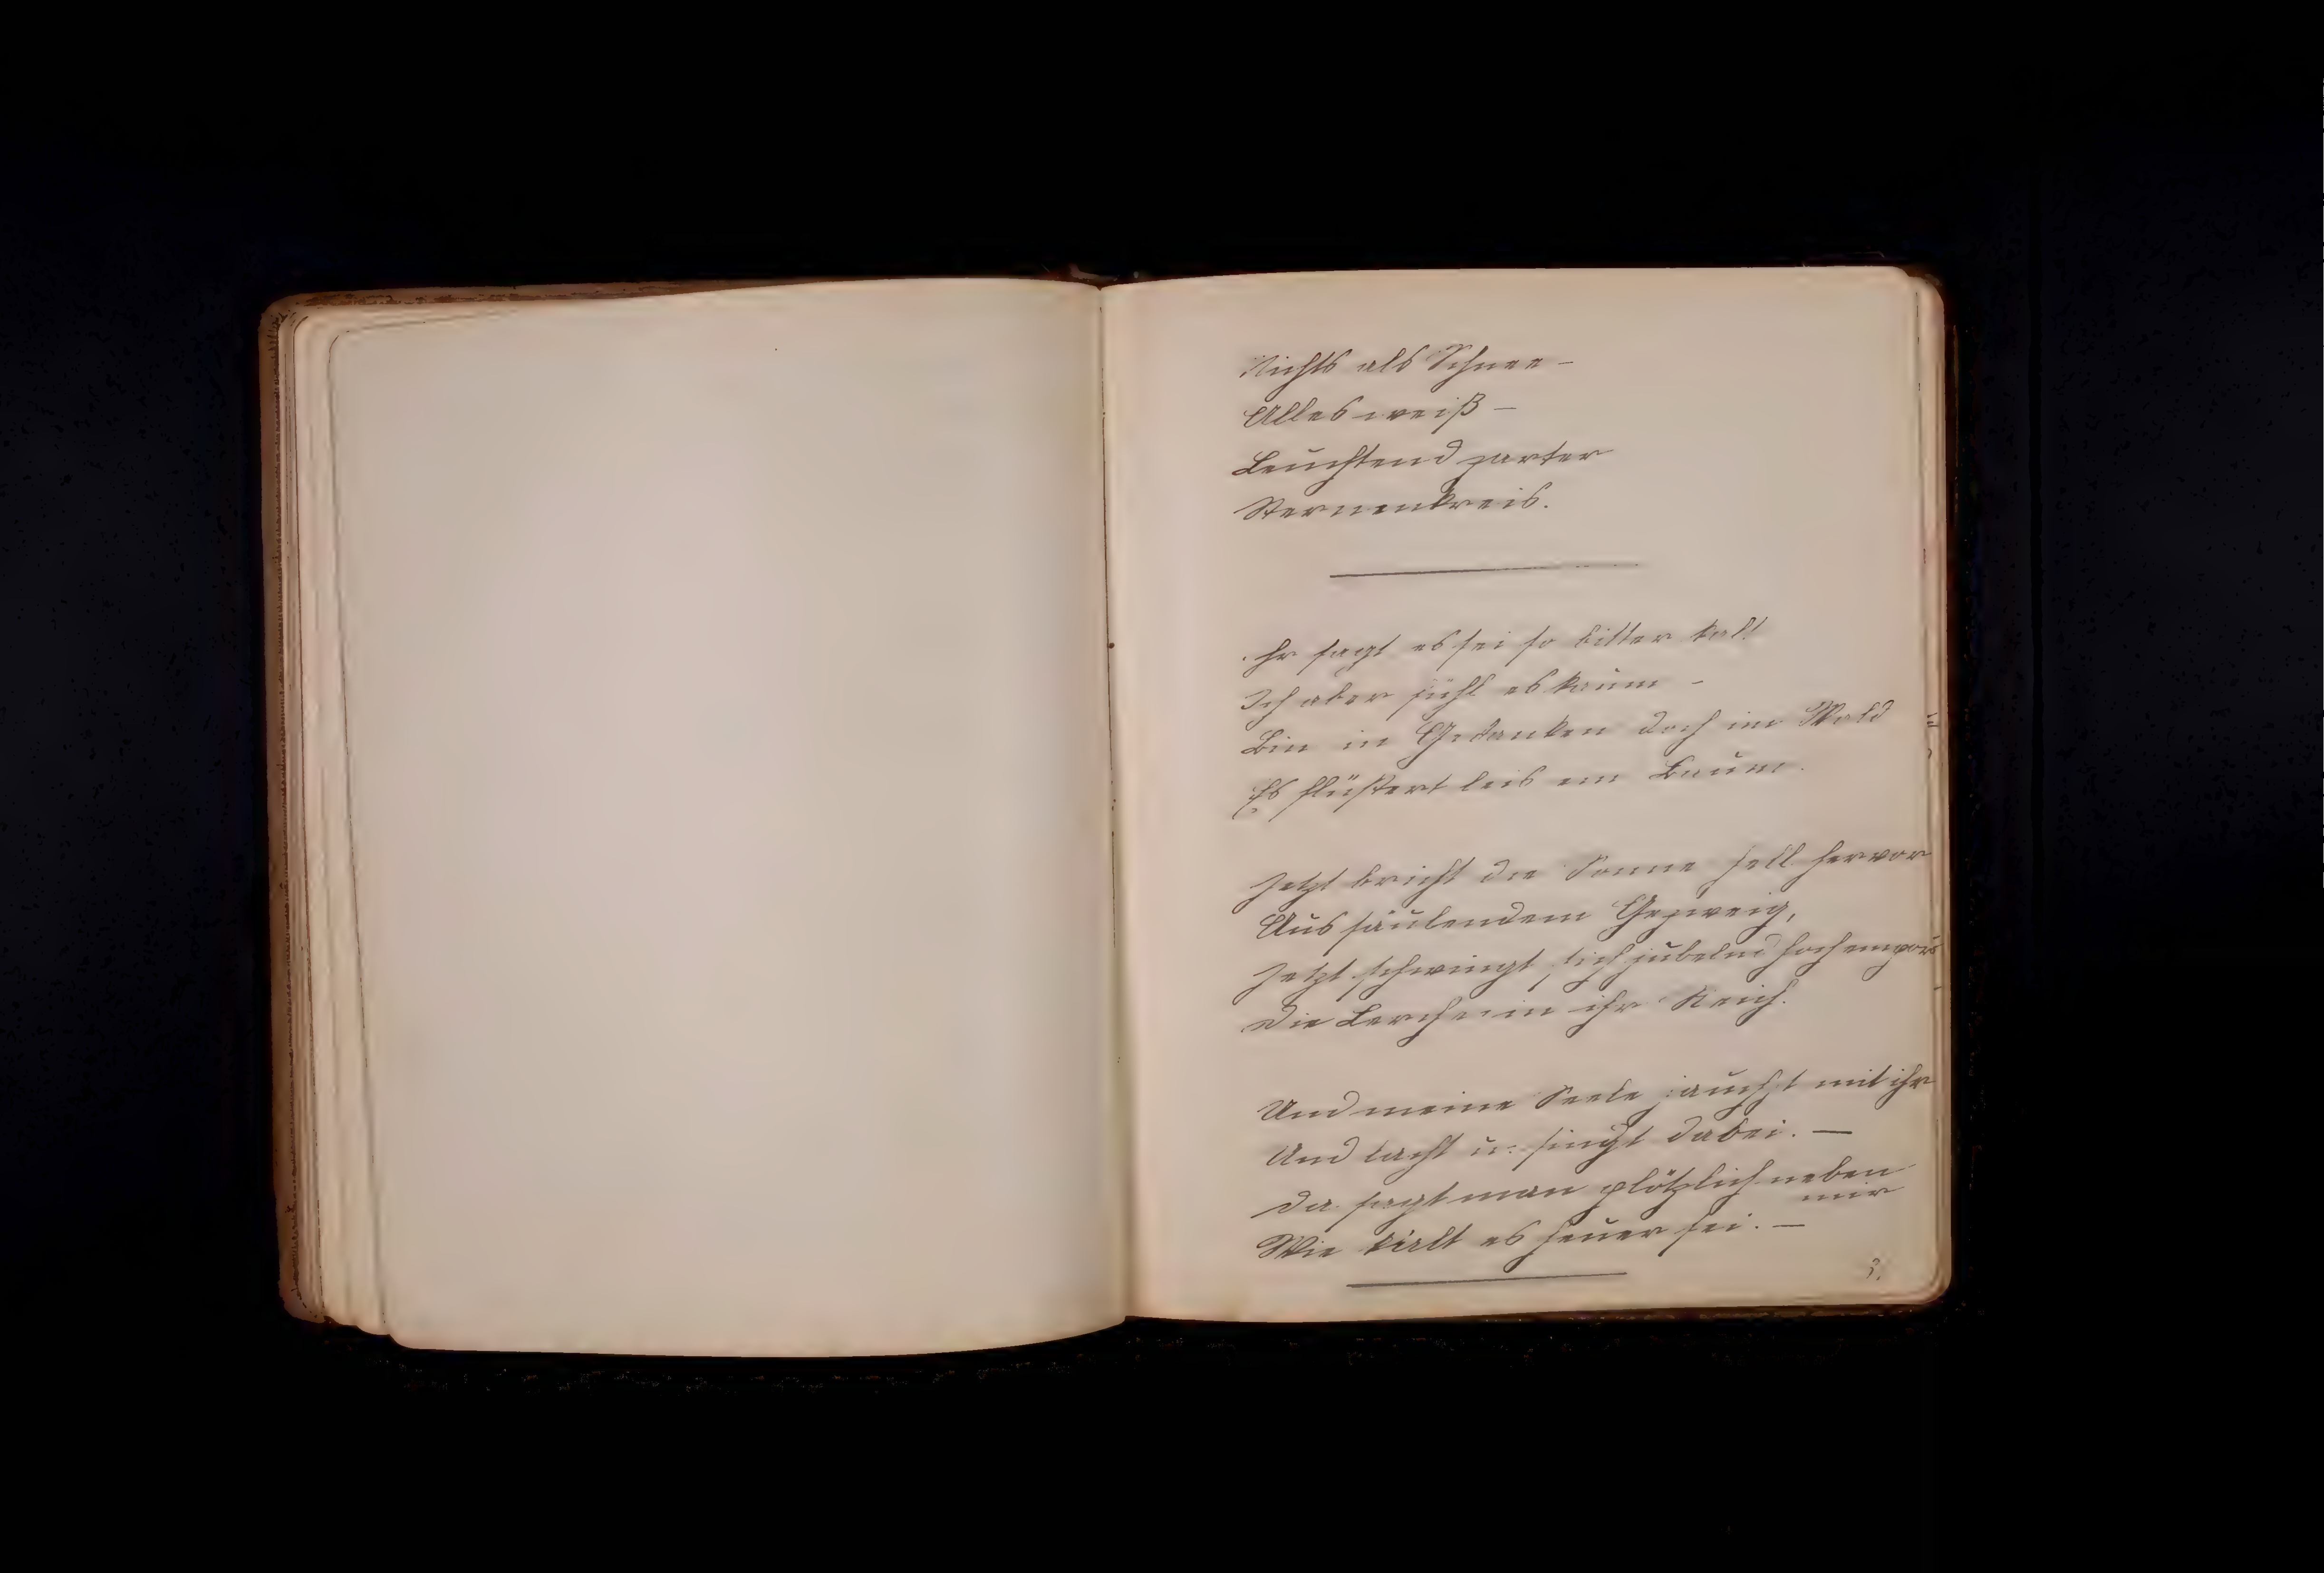 Nichts als Schnee –
Alles weiß –
Leuchtend zarter
Sternenkreis.
Ihr sagt es sei so bitter kalt
Ich aber fühl es kaum –
Bin in Gedanken doch im Wald
Es flüstert leis ein Baum.
Jetzt bricht die Sonne hell hervor
Aus säulendem Gezweig,
Jetzt schwingt sich jubelnd hoch empor
Die Lerche in ihr Reich.
Und meine Seele jauchzt mit ihr
Und lacht u. singt dabei. —
Da sagt man plötzlich neben
mir
Wie kalt es heuer sei. —
3.